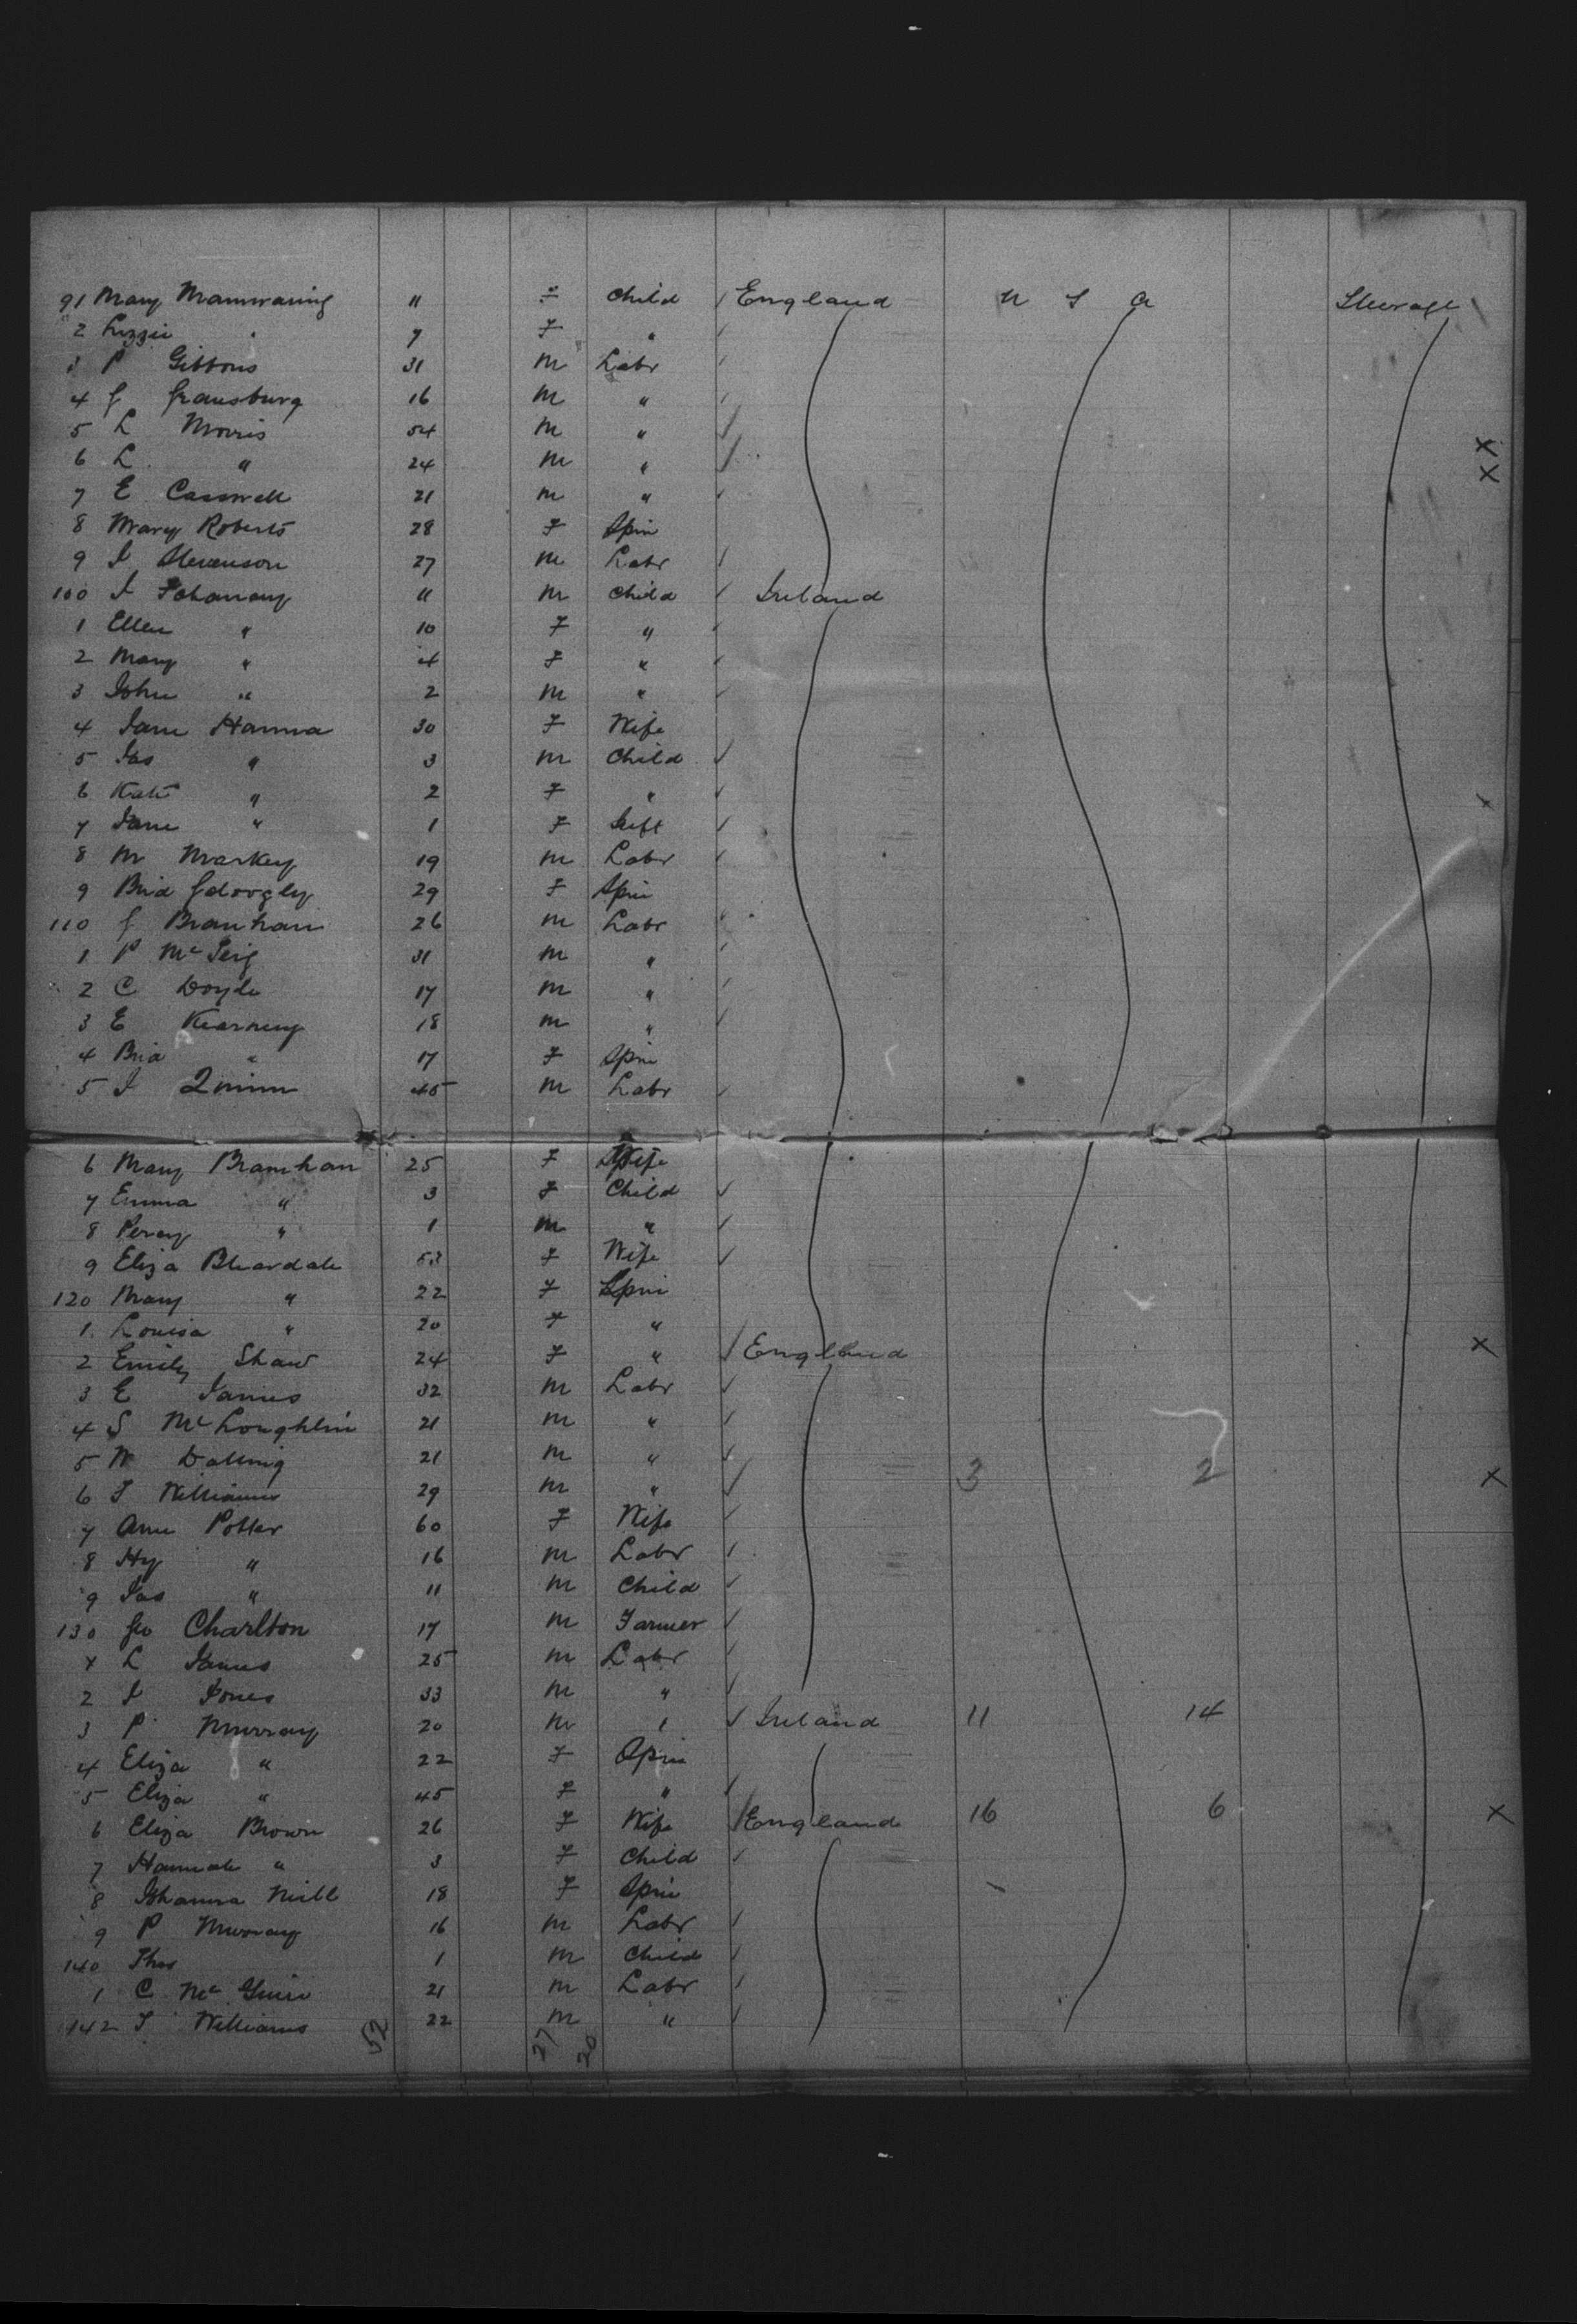 91 Mary Mainwaring 11 F Child England U S A Steerage
2 Lizzie " 7 F "
3 P Gibbons 31 M Labr
4 J 16 M "
5 L Morris 54 M "
6 L " 24 M " X
7 E Casswell 21 M " X
8 Mary Roberts 28 F Spin
9 J Stevenson 27 M Labr
100 J 11 M Child Ireland
1 Ellen " 10 F "
2 Mary " 4 F "
3 John " 2 M "
4 Jane Hanna 30 F Wife
5 Jas " 3 M Child
6 Kate " 2 F "
7 Jane " 1 F Inft
8 M Markey 19 M Labr
9 Brid 29 F Spin
110 J Branhan 26 M Labr
1 P 31 M "
2 C Doyle 17 M "
3 E Kearney 18 M "
4 Brid " 17 F Spin
5 J Quinn 45 M Labr
6 Mary Bramhan 25 F Wife
7 Emma " 3 F Child
8 Percy " 1 M "
9 Eliza Bleardale 53 F Wife
120 Mary " 22 F Spin
1 Louisa " 20 F "
2 Emily Shaw 24 F " England X
3 E James 32 M Labr
4 S McLoughlin 21 M "
5 W 21 M " 3 2
6 J Williams 29 M " X
7 Ann Potter 60 F Wife
8 Hy " 16 M Labr
9 Jas " 11 M Child
130 Geo Charlton 17 M Farmer
1 L James 25 M Labr
2 J Jones 33 M "
3 P Murray 20 M " Ireland 11 14
4 Eliza " 22 F Spin
5 Eliza " 45 F "
6 Eliza Brown 26 F Wife England 16 6 X
7 Hannah " 3 F Child
8 Johanna Neill 18 F Spin
9 P Murray 16 M Labr
140 Thos 1 M Child
1 C McGuire 21 M Labr
142 J Williams 22 M "
52 27 20